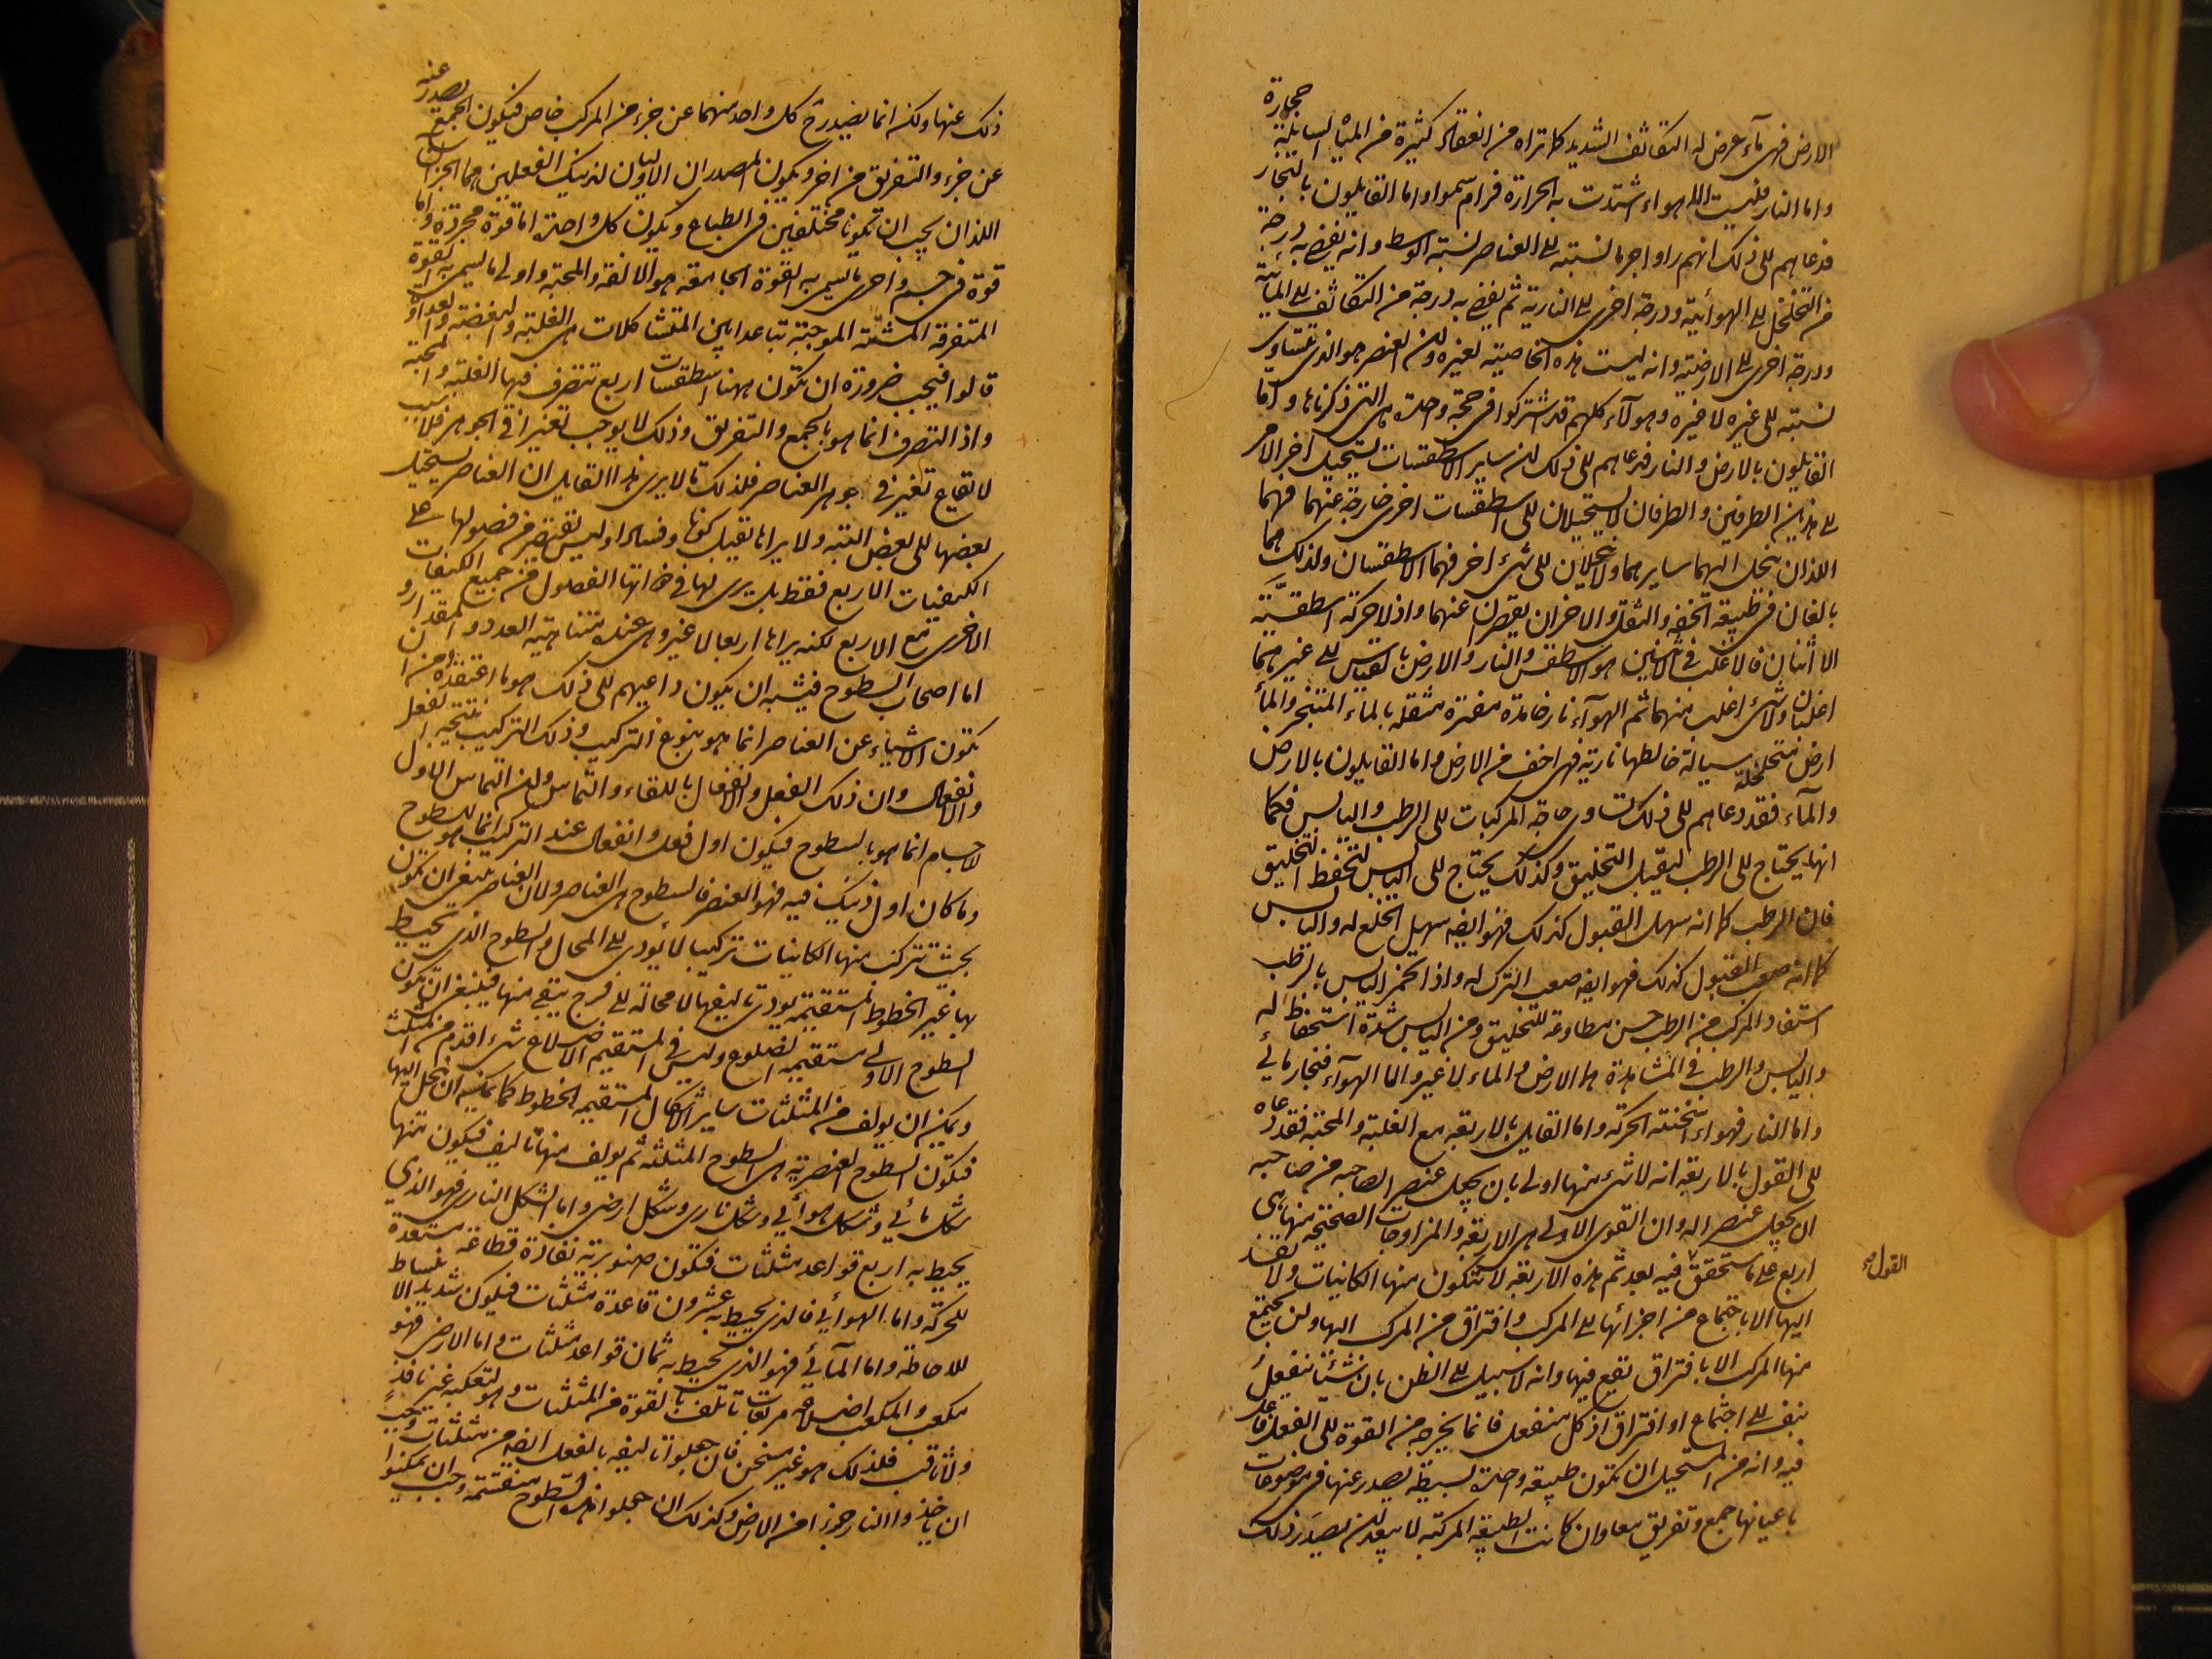 حجارة
الارض فهى مآء عرض له التكاثف الشديد كما تراه من انعقاد كثيرة من المياه السايلة
واما النار فليست الا هواء اشتدت به الحرارة فرام سموا واما القايلون بالبخار
فدعاهم الى ذلك انهم راوا جرما نسبته الى العناصر نسبة الوسط وانه يفضى به درجة
من التخلخل الى الهوائية ودرجة اخرى الى النارية ثم يفضى به درجة من التكاثف الى المائية
ودرجة اخرى الى الارضية وانه ليست هذه الخاصية لغيره وان العنصر هو الذى تتساوى
نسبته الى غيره لا غيره وهولآء كلهم قد اشتركوا فى حجة واحدة هى التى ذكرناها واما
القايلون بالارض والنار فدعاهم الى ذلك ان ساير الاسطقسات تستحيل اخر الامر
الى هذين الطرفين والطرفان لا يستحيلان الى اسطقسات اخرى خارجة عنهما فهما
اللذان ينحل اليهما سايرهما ولا ينحلان الى شىء اخر فهما الاسطقسان ولذلك هما
بالغان فى طبيعة الخفة والثقل والاخران يقصران عنهما واذ لا حركة اسطقسية
الا اثنان فالاغلب فى الاثنين هو الاسطقس والنار والارض بالقياس الى غيرهما
اغلبان ولا شىء اغلب منهما ثم الهوآء نار خامدة مفترة مثقلة بالماء المتبخر والمآء
ارض متحللة سيالة خالطها نارية فهى اخف من الارض واما القايلون بالارض
والمآء فقد دعاهم الى ذلك تساوى حاجة المركبات الى الرطب واليابس فكما
انها يحتاج الى الرطب ليقبل التخليق وكذلك يحتاج الى اليابس لتحفظ التخليق
فان الرطب كما انه سهل القبول كذلك فهو ايضه سهل الخلع له واليابس
كما انه صعب القبول كذلك فهو ايضه صعب الترك له واذا تخمر اليابس بالرطب
استفاد المركب من الرطب حسن مطاوعة للتخليق ومن اليابس شدة استحفاظ له
واليابس والرطب فى المشاهدة هما الارض والماء لا غير واما الهوآء فبخار مائى
واما النار فهواء سخنته الحركة واما القايل بالاربعة مع الغلبة والمحبة فقد دعاه
الى القول بالاربعة انه لا شىء منها اولى بان يجعل عنصرا لصاحبه من صاحبه
ان يجعل عنصرا له وان القوى الاولى هى الاربعة والمزاوجات الصحيحة منها هى
اربع على ما ستحقق فيه بعد ثم هذه الاربعة لا تتكون منها الكاينات ولا تفسد
القول صح
اليها الا باجتماع من اجزائها الى المركب وافتراق من المركب اليها ولن يجتمع
منها المركب الا بافتراق تقع فيها وانه لا سبيل الى الظن بان شيئا ينفعل
بنفسه الى اجتماع او افتراق اذ كل منفعل فانما يخرجه من القوة الى الفعل فاعل
فيه وانه من المستحيل ان تكون طبيعة واحدة بسيطة يصدر عنها فى موضوعات
باعيانها جمع وتفريق معا وان كانت الطبيعة المركبة لا يبعد ان يصدر ذلك
ذلك عنها ولكنه انما يصدر ح كل واحد منهما عن جزء من المركب خاص فيكون الجمع يصدر عنه
عن جزء والتفريق من اخر ويكون المصدران الاوليان لذينك الفعلين هما الجزءان
اللذان يجب ان يكونا مختلفين فى الطباع ويكون كل واحدة اما قوة مجردة واما
قوة فى جسم واحرى ما يسمى به القوة الجامعة هو الالفة والمحبة واولى ما يسمى به القوة
المتفرقة المشتتة الموجبة تباعدا بين المتشاكلات هى الغلبة والبغضة والعداوة
قالوا فيجب ضرورة ان تكون ههنا اسطقسات اربع تتصرف فيها الغلبة والمحبة
واذ التصرف انما هو بالجمع والتفريق وذلك لا يوجب تغيرا فى الجوهر فلا سبب
لايقاع تغير فى جوهر العناصر فلذلك ما لا يرى هذا القايل ان العناصر يستحيل
بعضها الى بعض البتة ولا يراها تقبل كونا وفسادا وليس يقتصر من فصولها على
الكيفيات الاربع فقط بل يرى لها فى ذاتها الفصول من جميع الكيفيات
الاخرى مع الاربع لكنه يراها اربعا لا غير وهى عنده متناهية العدد والمقدار و
اما اصحاب السطوح فيشبه ان يكون داعيهم الى ذلك هو ما اعتقدوه من ان
تكون الاشياء عن العناصر انما هو بنوع التركيب وذلك التركيب نتيجة الفعل
والانفعال وان ذلك الفعل والانفعال باللقاء والتماس وان التماس الاول
للاجسام انما هو بالسطوح فيكون اول فعل وانفعال عند التركيب انما هو للسطوح
وما كان اول ذينك فيه فهو العنصر فالسطوح هى العناصر ولان العناصر ينبغى ان تكون
بحيث تتركب منها الكاينات تركيبا لا يؤدى الى المحال والسطوح الذى يحيط
بها غير الخطوط المستقيمة يودى تاليفها لا محالة الى فرج يبقى منها فينبغى ان تكون
السطوح الاولى مستقيمة الضلوع وليس فى المستقيم الاضلاع شىء اقدم من المثلث
ويمكن ان يولف من المثلثات ساير الاشكال المستقيمة الخطوط كما يمكنه ان ينحل اليها
فتكون السطوح العنصرية هى السطوح المثلثة ثم يولف منها تاليف فيكون منها
شكل مائى وشكل هوائى وشكل نارى وشكل ارضى واما الشكل النارى فهو الذى
يحيط به اربع قواعد مثلثات فتكون صنوبرية نفاذة قطاعة مستعدة
للحركة واما الهوائى فالذى يحيط به عشرون قاعدة مثلثات فيكون شديد الانبساط
للاحاطة واما المآئى فهو الذى يحيط به ثمان قواعد مثلثات واما الارضى فهو
مكعب والمكعب اضلاعه مربعات تاتلف بالقوة من المثلثات وهو لتكعبه غير نافذ
ولا ثاقب فلذلك هو غير مسخن فان جعلوا تاليفه بالفعل ايضه من مثلثات وجب
ان ياخذوا النار جزءا من الارض وكذلك ان جعلوا هذه السطوح منقسمة وجب ان يمكنوا